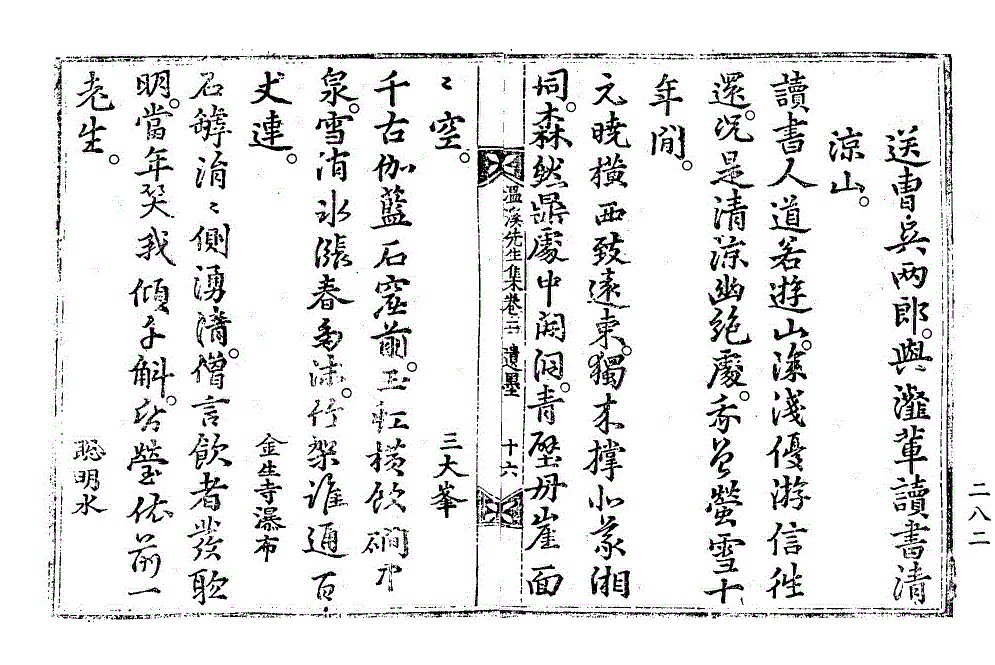 送曺吳兩郎。與瀣輩讀書清
涼山。
讀書人道若遊山。深淺優游信往
還。況是清涼幽絶處。我曾螢雪十
年間。
元曉橫西致遠東。獨來撑北蒙湘
同。森然鼎處中開洞。青壁丹崖面
溫溪先生集卷二 遺墨 十六
〻空。 三大峯
千古伽藍石窟前。玉虹橫飲磵中
泉。雪消水漲春多沫。竹架誰通百
丈連。 金生寺瀑布
石罅涓〻側湧清。僧言飲者發聰
明。當年笑我傾千斛。瑩依前一
老生。 聰明水
二八二